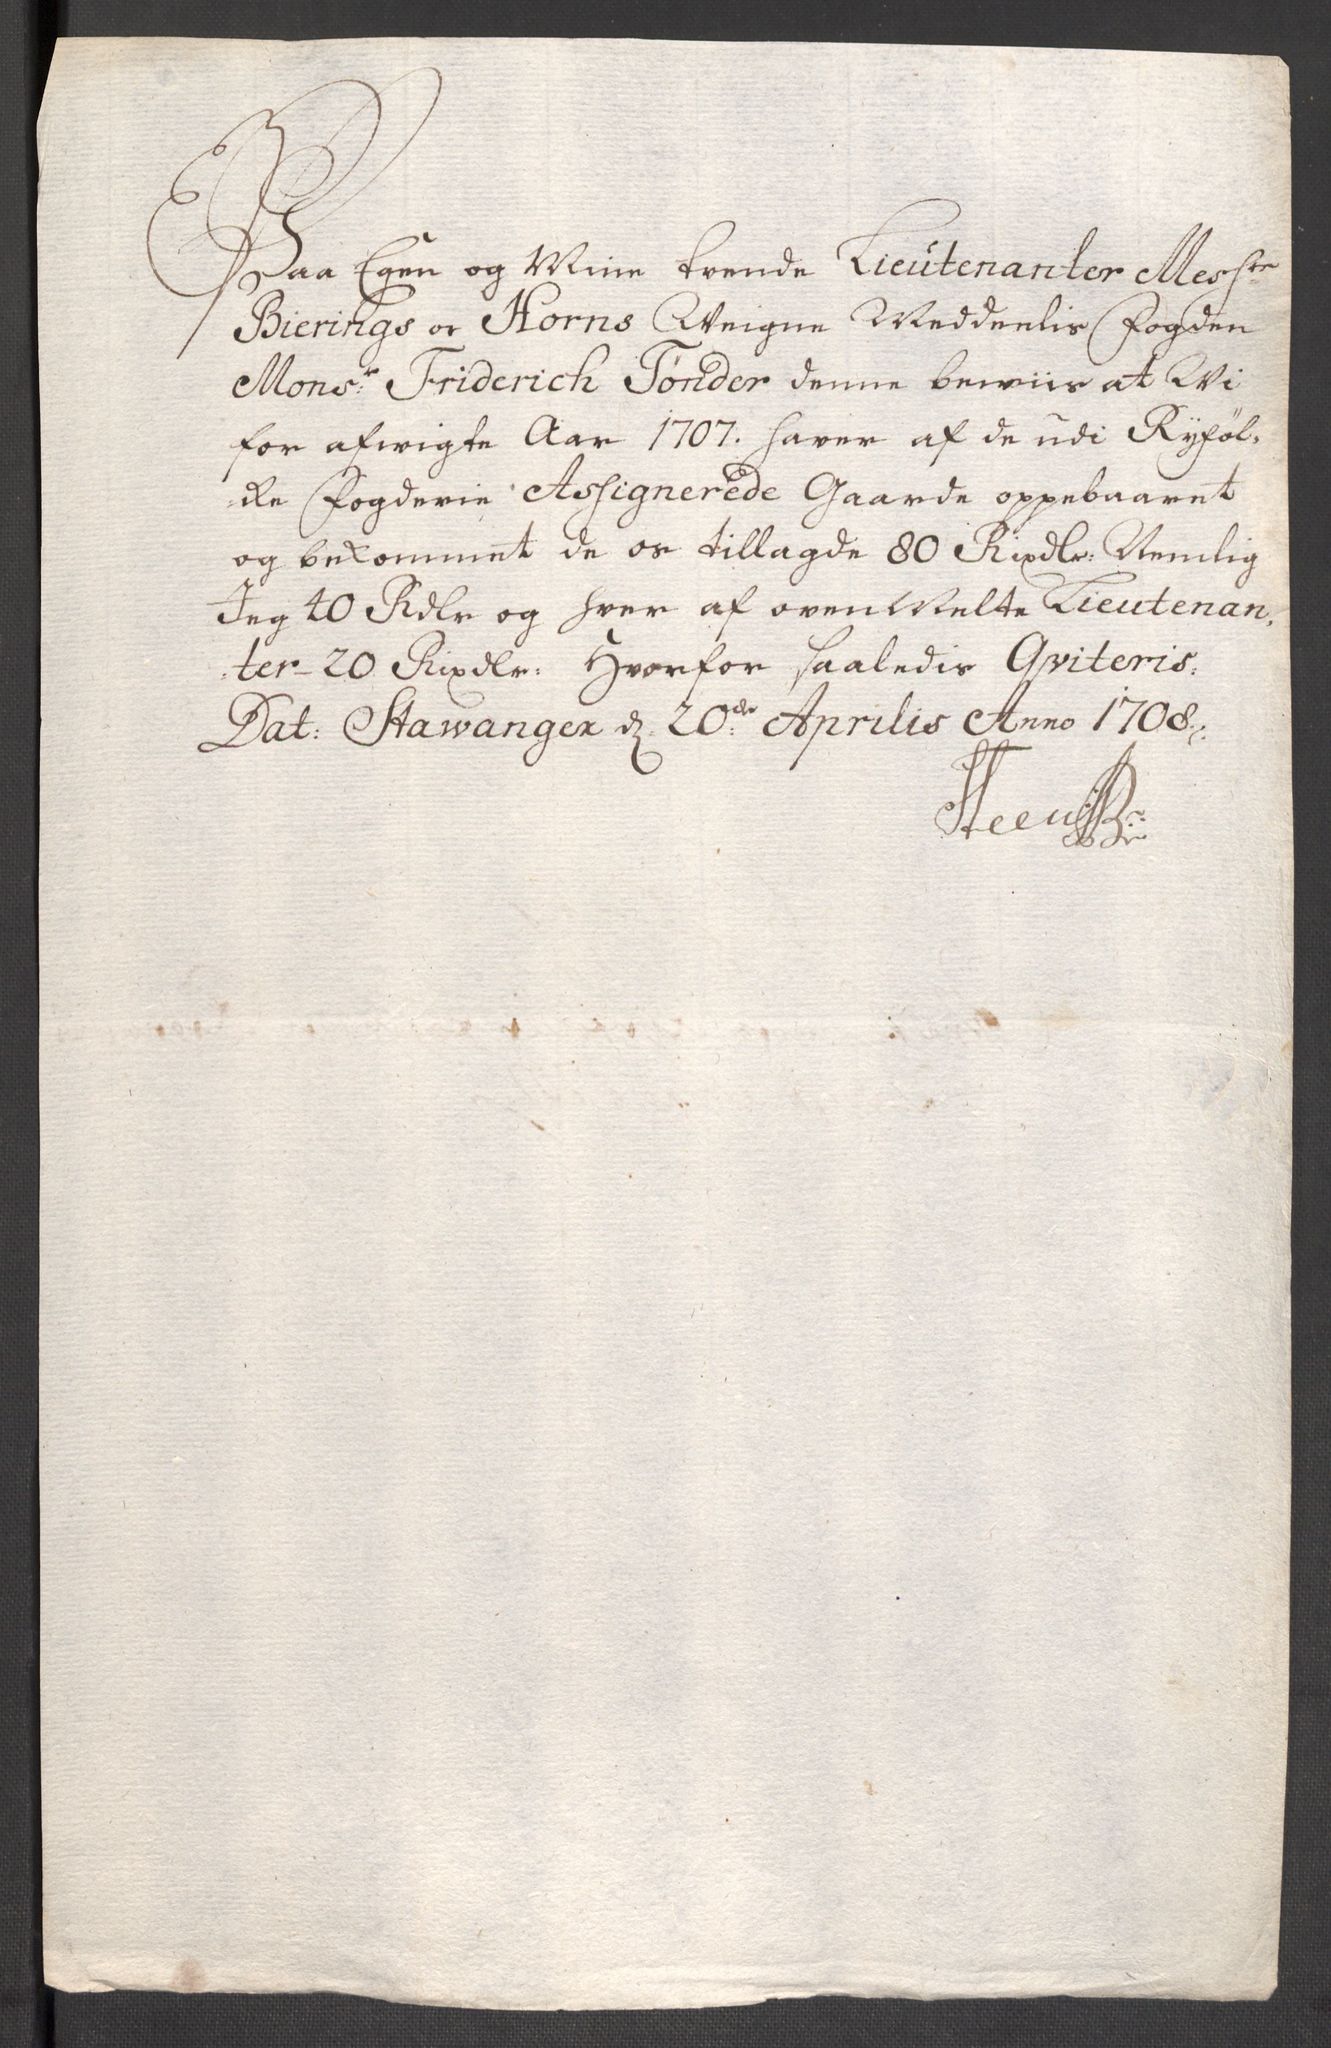 Paa Egen og Mine tvende Lieutenanter Messrs
Bierings og Horns Weigne Meddeelis Fogden
Monsr: Friderich Tönder denne beviis at Wi
for afwigte Aar 1707. hawer af de udi Ryföl-
ke Fogderie Assignerede Gaarde oppebaaret
og bekommet de os tillagde 80 Rixdlr: Nemlig
Jeg 40 Rdlr og hver af ovenmelte Lieutenan-
ter 20 Rixdlr: Hvorfor saaledis Qviteris.
Dat: Stawanger d. 20de Aprilis Anno 1708.